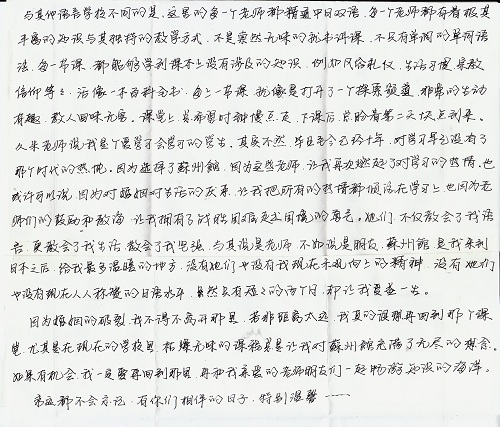 与其他语言学校不同的是,这里的每一个老师都精通中日双语,每一个老师都有着极其
丰富的知识与其独特的教学方式,不是索然无味的照书讲课,不只有单调的单词语
法,每一节课,都能够学到课本上没有涉及的知识,例如风俗礼仪,生活习惯,宗教
信仰等等,活像一本百科全书,每上一节课,就像是打开了一个探索频道,非常的生动
有趣,教人回味无穷。课堂上总希望时钟慢点走,下课后,总盼着第二天快点到来。
久米老师说我是个愿学习会学习的学生。其实不然,毕业至今已经十年,对学习早已没有了
那个时代的热忱。因为选择了蘇州館,因为这些老师,让我再次燃起了对学习的热情。也
或许可以说,因为对婚姻对生活的灰暗,让我把所有的热情都倾注在学习上,也因为老
师们的鼓励和教诲,让我拥有了战胜困扰走出困境的勇气。她们,不仅教会了我语
言,更教会了我生活,教会了我坚强,与其说是老师,不如说是朋友,蘇州館是我来到
日本之后,给我最多温暖的地方,没有她们也没有我现在乐观向上的精神,没有她们
也没有现在人人称赞的日语水平,虽然只有短短的四个月,却让我受益一生。
因为婚姻的破裂,我不得不离开那里,若非距离太远,我真的很想再回到那个课
堂,尤其是在现在的学校里,枯燥无味的课程总是让我对蘇州館充满了无尽的想念。
如果有机会,我一定要再回到那里,再和我亲爱的老师朋友们一起畅游知识的海洋。
永远都不会忘记,有你们相伴的日子,特别温馨——